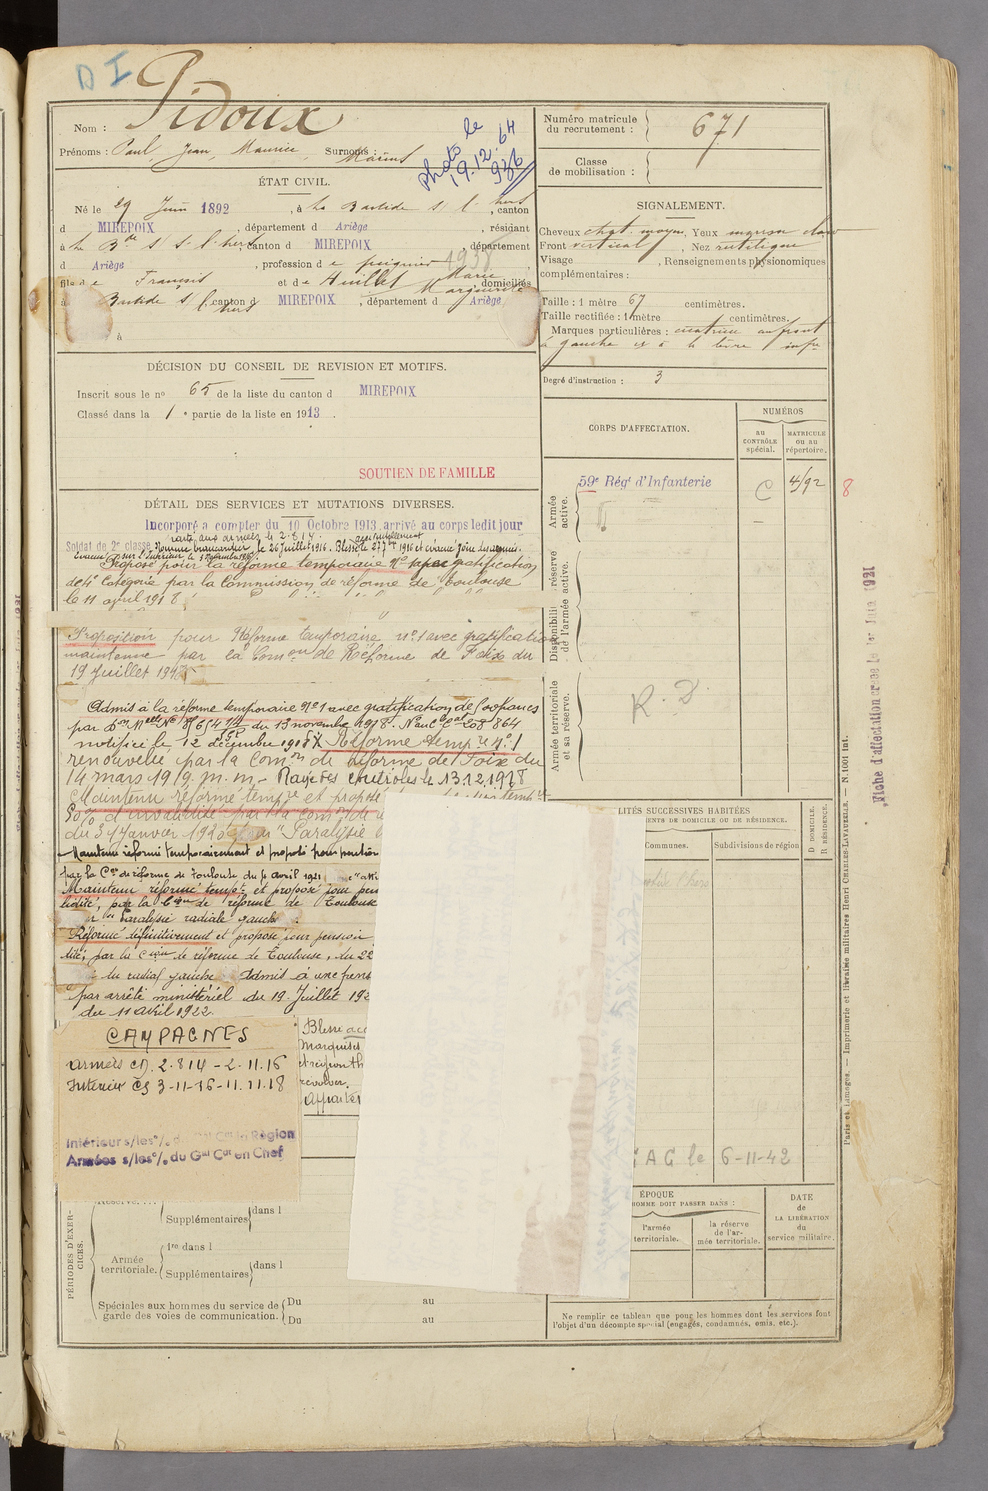 D I
Nom : Pidoux
Prénoms : Paul, Jean, Maurice Surnoms : Marius
photo le
19.12.64
936
ÉTAT CIVIL.
Né le 29 Juin 1892, à La Bastide s/ l'hers, canton
d MIREPOIX, département d Ariège, résidant
à La Bde s/ l'hers canton d MIREPOIX, département
d Ariège, profession de peignier 1938
fils de François et de Huillet Marie Marguerite domiciliés
à Bastide s/ l'hers canton d MIREPOIX, département d Ariège
à
DÉCISION DU CONSEIL DE REVISION ET MOTIFS.
Inscrit sous le no 65 de la liste du canton d MIREPOIX
Classé dans la 1e partie de la liste en 1913.
SOUTIEN DE FAMILLE
DÉTAIL DES SERVICES ET MUTATIONS DIVERSES.
Incorporé a compter du 10 Octobre 1913, arrivé au corps ledit jour
parti aux armées le 2.8.14.
Soldat de 2e classe Nommé brancardier le 26 juillet 1916. Blessé le 27 7bre 1916 et évacué
Evacué sur l'Intérieur le 3 Novembre 1916.
Proposé pour la réforme temporaire No 1 avec gratification
de 4e Catégorie par la Commission de réforme de Toulouse
le 11 avril 1918
Proposition pour Réforme temporaire no 1 avec gratification
maintenue par la Comon de Réforme de Foix du
19 Juillet 1918
Admis à la réforme temporaire No 1 avec gratification de
par Don Melle No du 13 novembre 1918. 864
notifiée le 12 décembre 1918 X Réforme tempre no 1
renouvelée par la Comon de Réforme de Foix du
14 mars 1919. m. m. - Rayé des contrôles le 13.12.1918
Maintenu réformé tempre et proposé
50% d'invalidité par la Comon de
du 31 Janvier 1920 "Paralysie
Maintenu réformé temporairement et proposé pour pension
par la Con de réforme de Toulouse du avril 1921
Maintenu réformé tempre et proposé pour pen
lidité, par la Cion de réforme de Toulouse
paralysie radiale gauche
Réformé définitivement et proposé pour pension
lité, par la Cion de réforme de Toulouse, du 22
du radial gauche Admis à une pens
par arrêté ministériel du 19 Juillet 192
du 11 avril 1922.
CAMPAGNES
Armées CD. 2.8.14 - 2.11.16
Intérieur CS 3-11-16-11.11.18
Intérieur s/les o/. du Gal Cdt la Région
Armées s/les o/. du Gal Cdt en Chef
Blessé acc
Marquises
et région th
révolver.
Apparter
PÉRIODES D'EXERCICES.
Réserve
Supplémentaires dans l
Armée territoriale. 1re dans l
Supplémentaires dans l
Spéciales aux hommes du service de garde des voies de communication. Du au
Du au
Numéro matricule du recrutement : 671
Classe de mobilisation :
SIGNALEMENT.
Cheveux chat. moyen, Yeux marron clair
Front vertical, Nez rectiligne
Visage , Renseignements physionomiques
complémentaires :
Taille : 1 mètre 67 centimètres.
Taille rectifiée : 1 mètre centimètres.
Marques particulières : cicatrice au front
à gauche et à la lèvre infre
Degré d'instruction : 3
CORPS D'AFFECTATION.
NUMÉROS
AU CONTRÔLE spécial.
MATRICULE ou au répertoire.
Armée active.
59e Régt d'Infanterie C 4192
8
Disponibilité et réserve de l'armée active.
Armée territoriale et sa réserve.
R. D.
LITÉS SUCCESSIVES HABITÉES
MENTS DE DOMICILE OU DE RÉSIDENCE.
Communes.
Subdivisions de région
D DOMICILE.
R RÉSIDENCE.
CAC le 6-11-42
ÉPOQUE
HOMME DOIT PASSER DANS :
l'armée territoriale.
la réserve de l'armée territoriale.
DATE de LA LIBÉRATION du service militaire.
Ne remplir ce tableau que pour les hommes dont les services font
l'objet d'un décompte spécial (engagés, condamnés, omis, etc.).
Paris et Limoges. — Imprimerie et librairie militaires Henri CHARLES-LAVAUZELLE. — N. 1001 int.
Fiche d'affectation créée le 1er Juin 1921